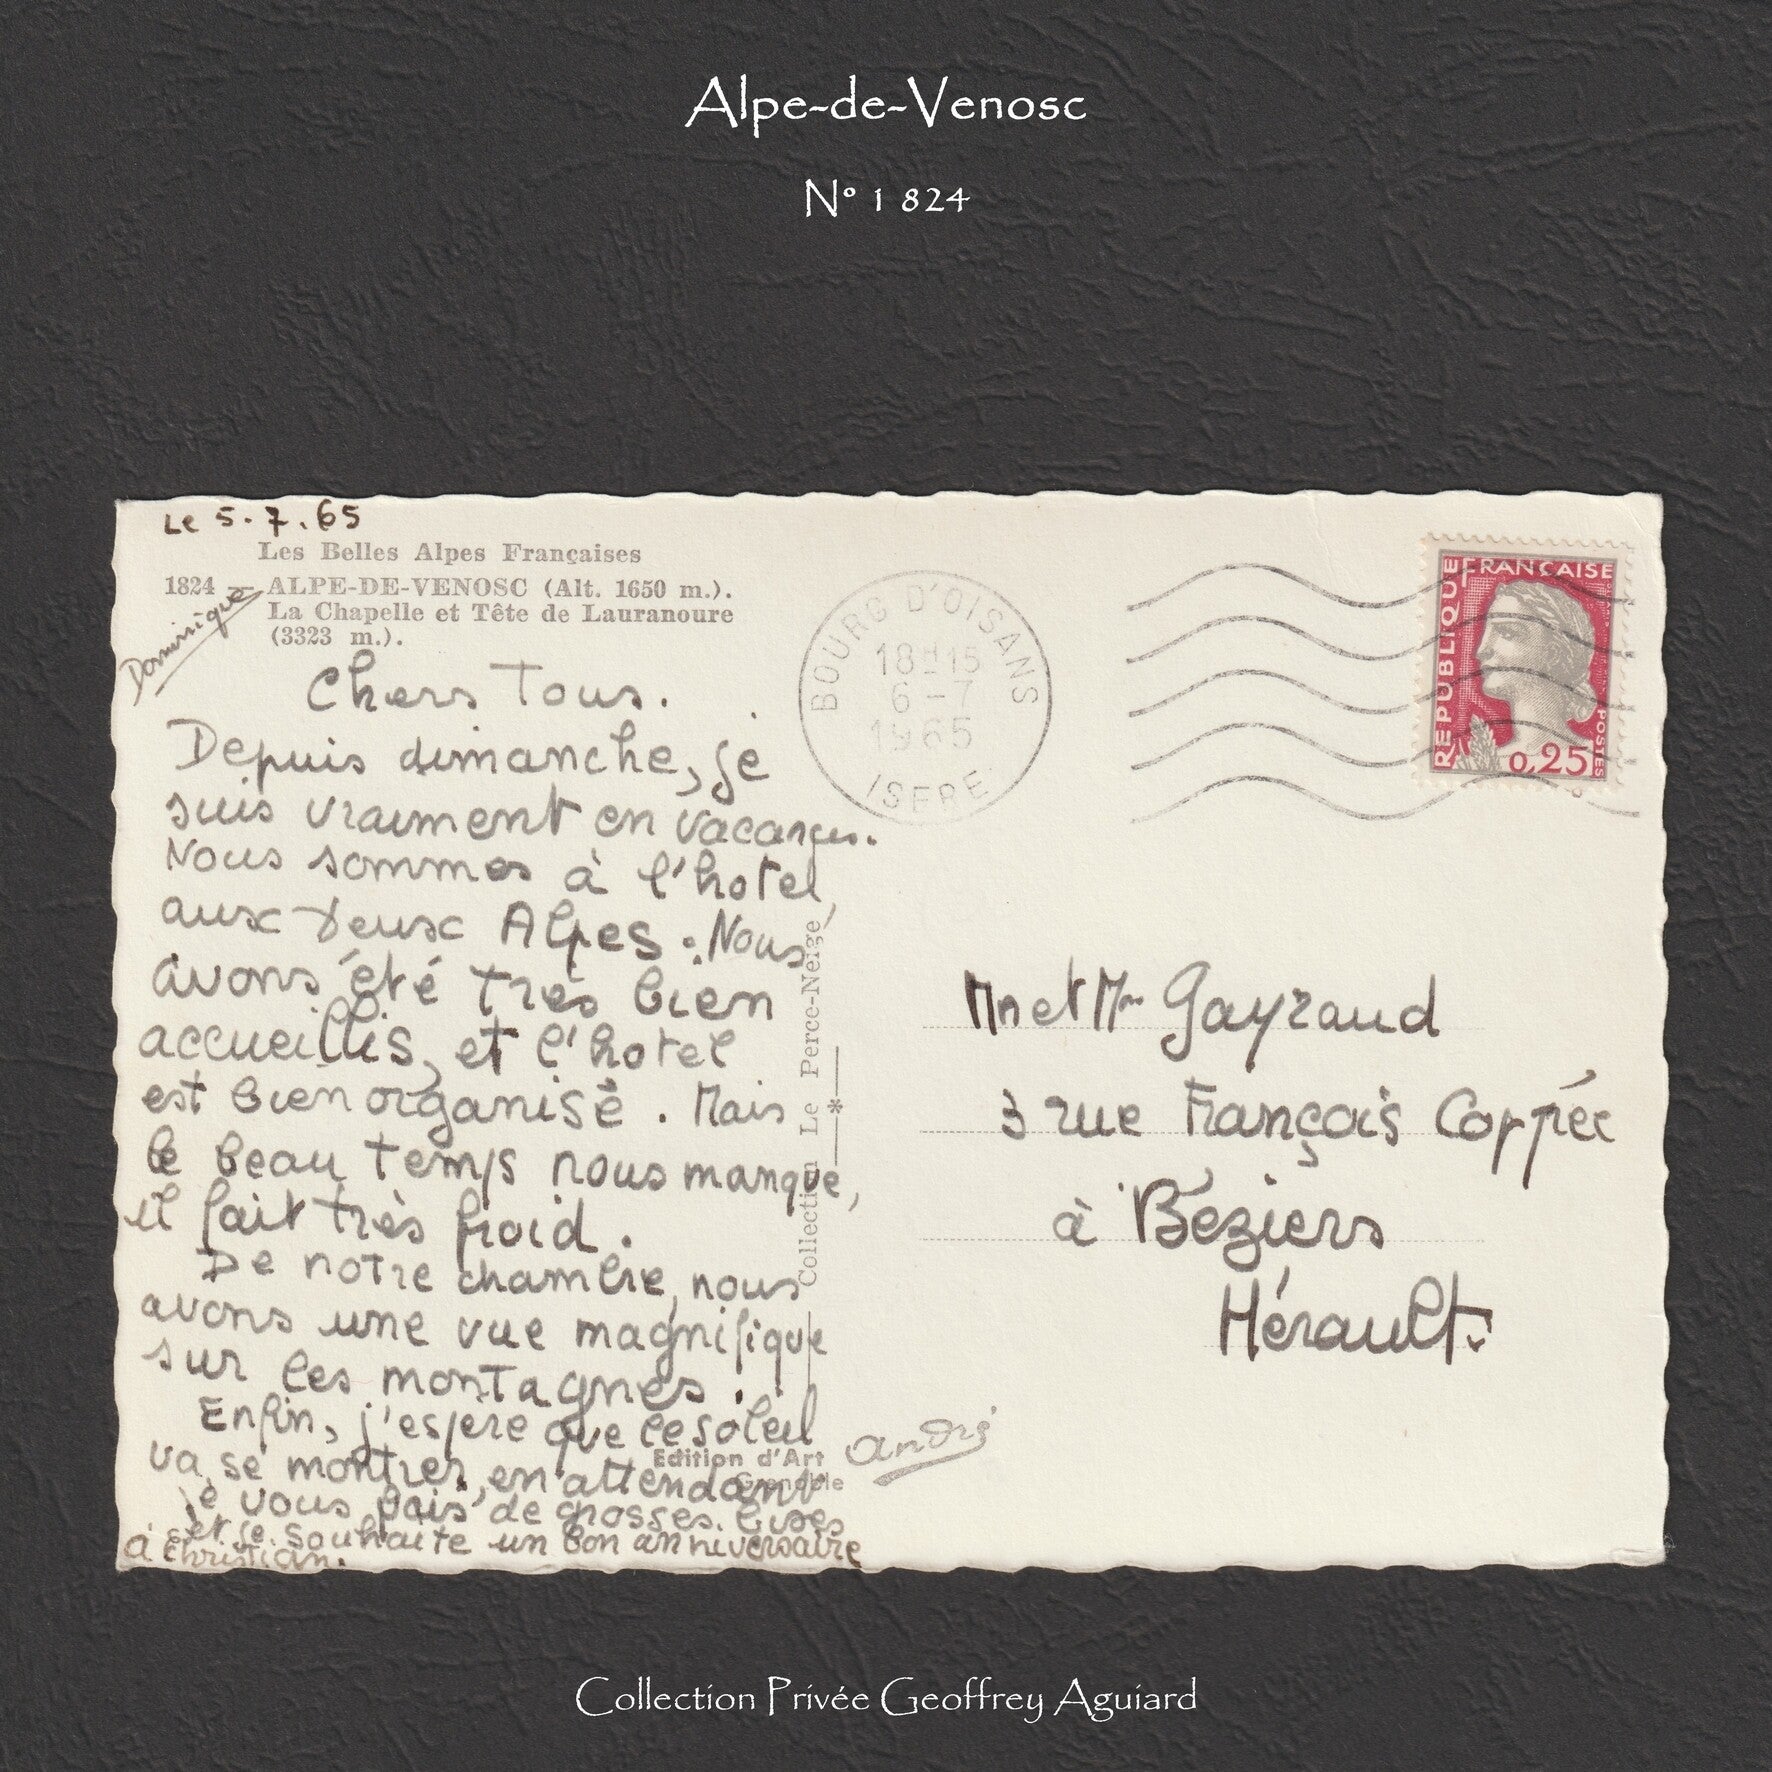 Alpe-de-Venosc
N° 1 824
Le 5.7.65
Les Belles Alpes Françaises
1824 — ALPE-DE-VENOSC (Alt. 1650 m.).
La Chapelle et Tête de Lauranoure
(3323 m.).
Dominique
Chers Tous.
Depuis dimanche, je
suis vraiment en vacances.
Nous sommes à l'hotel,
aux Deux Alpes. Nous
avons été très bien
accueillis, et l'hotel
est bien organisé. Mais
le beau temps nous manque,
il fait très froid.
De notre chambre, nous
avons une vue magnifique
sur les montagnes.
Enfin, j'espère que le soleil
va se montrer, en attendant
je vous fais de grosses bises
et je souhaite un bon anniversaire
à Christian.
Collection Le Perce-Neige
Edition d'Art
André
Grenoble
BOURG D'OISANS
18H15
6-7
1965
ISERE
REPUBLIQUE FRANÇAISE
POSTES
0,25
Mr et Mme Gayraud
3 rue François Coppée
à Béziers
Hérault.
Collection Privée Geoffrey Aguiard